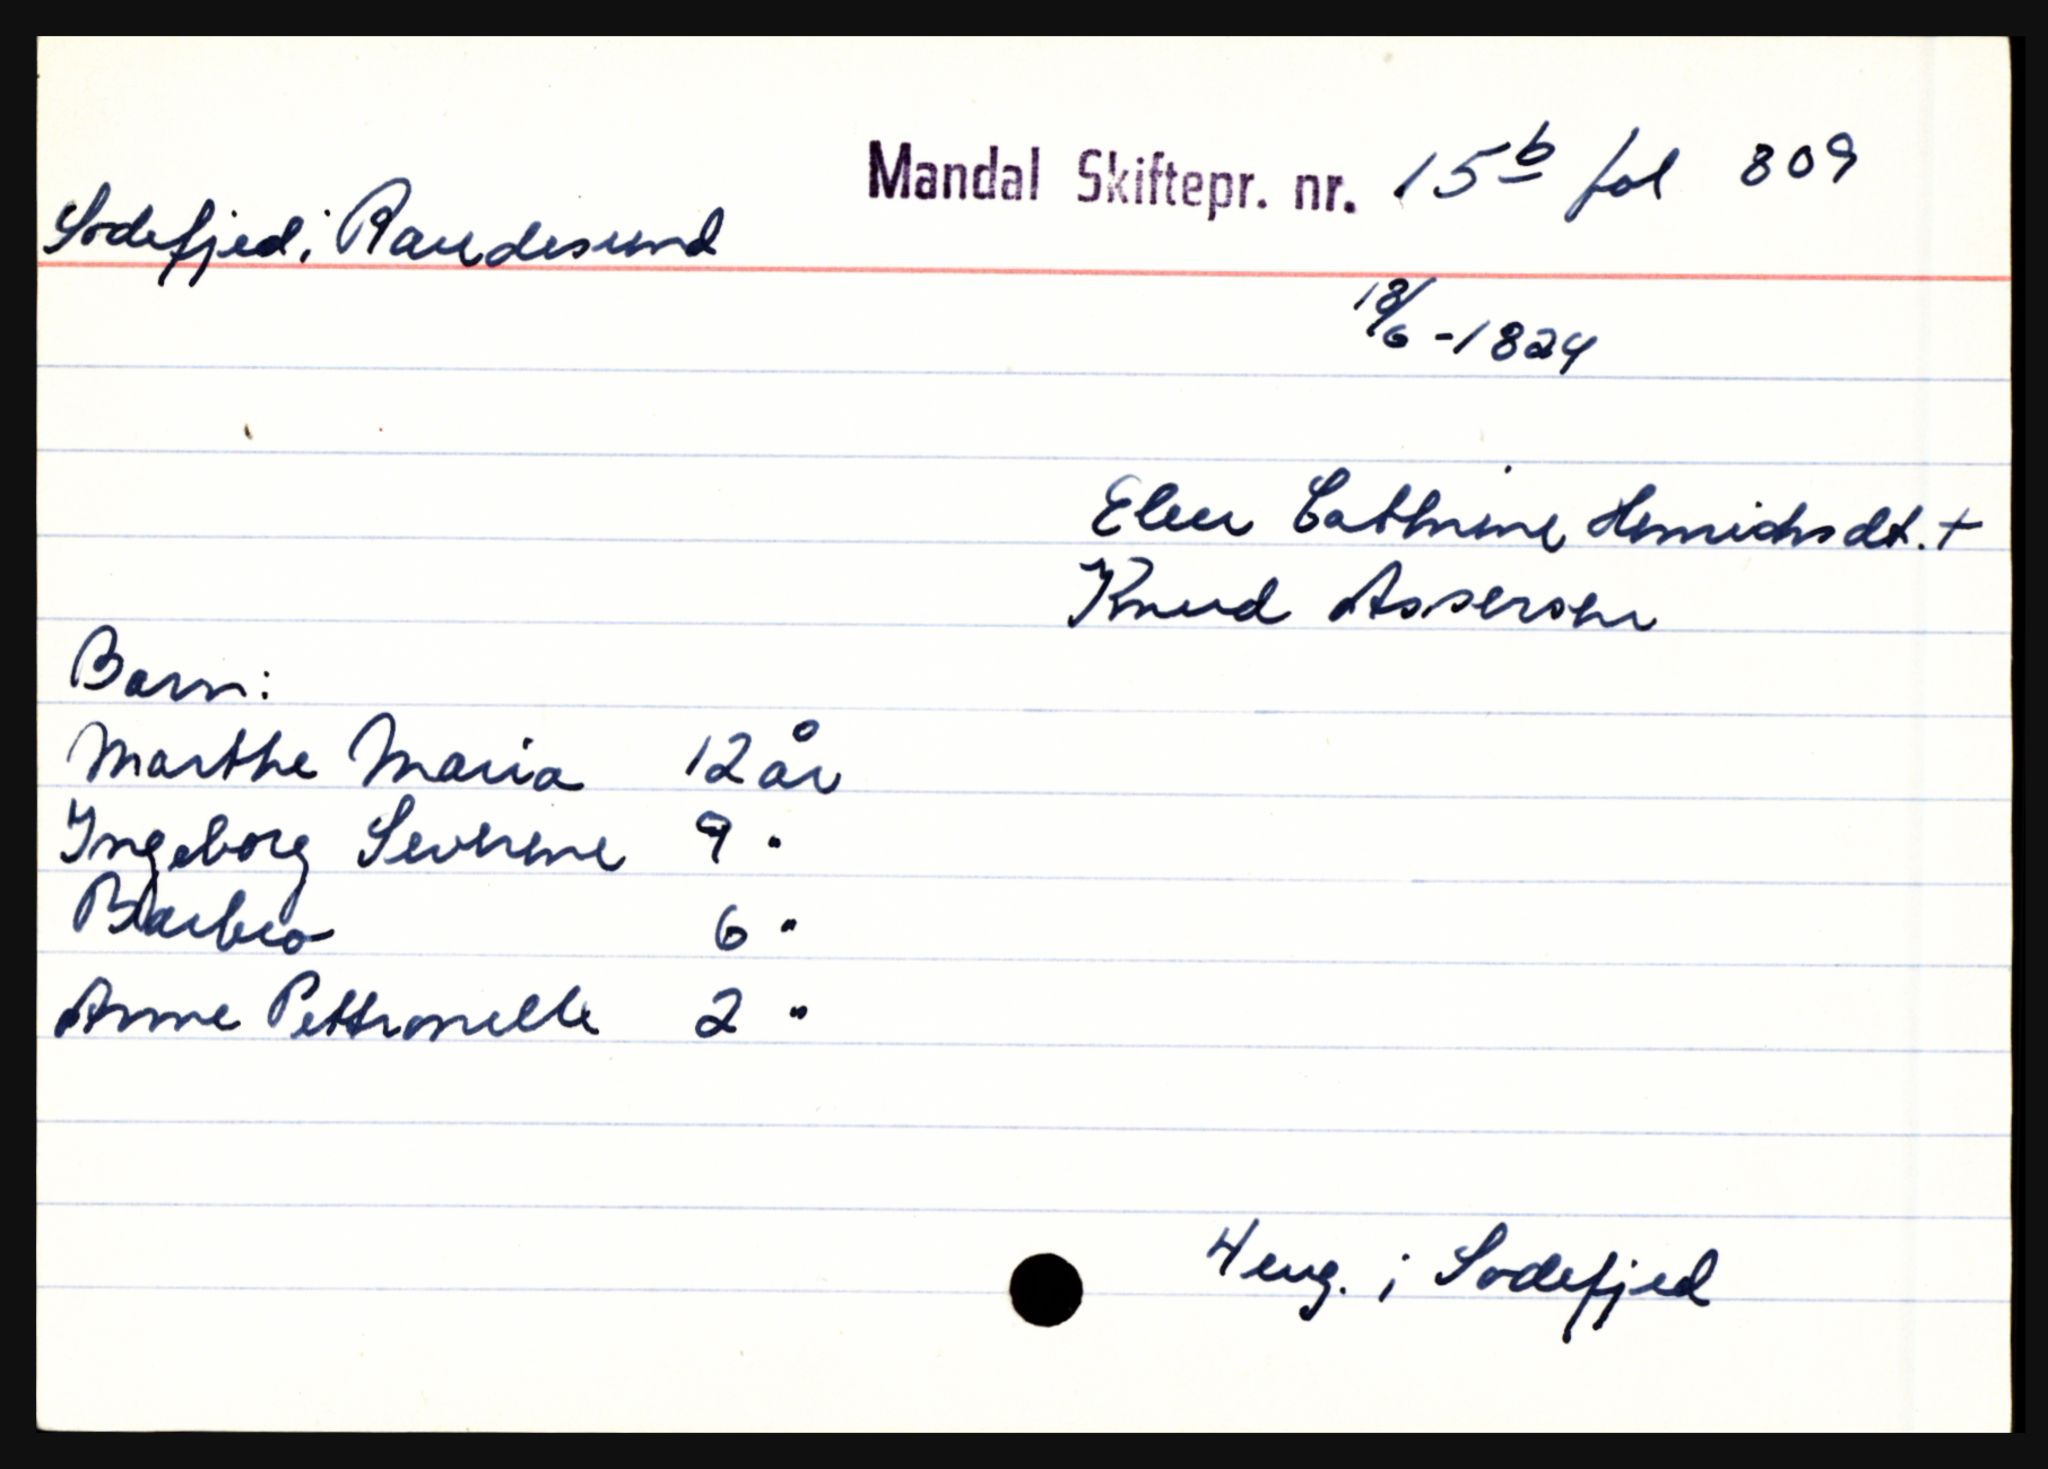 Mandal Skiftepr. nr. 15b fol 809
Sodefjed i Randesund
18/6 - 1824
Elen Cathrine Henrichsdt. +
Knud Assersen
Barn:
Marthe Maria 12 år
Ingeborg Severine 9 "
Barbro 6 "
Anne Pettronelle 2 "
4 eug. i Sodefjed